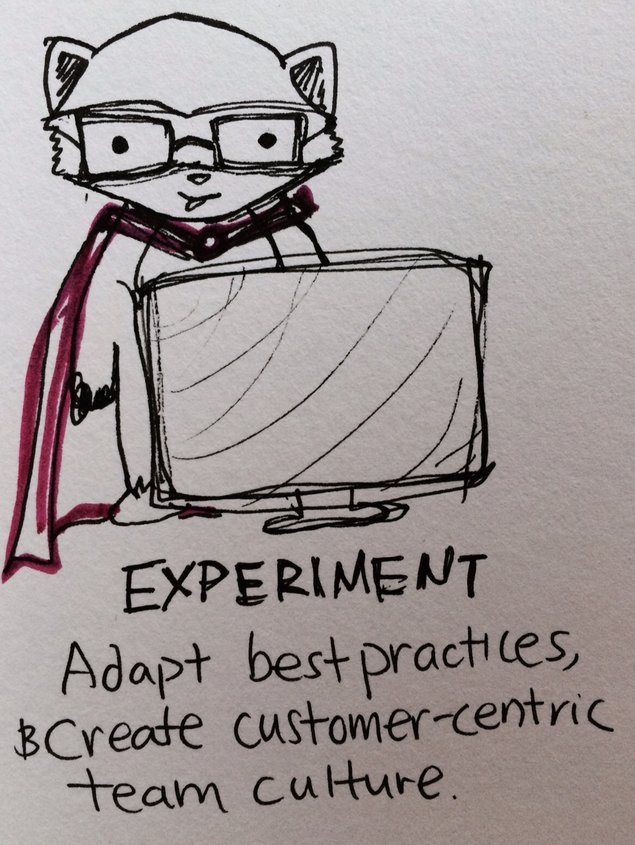 EXPERIMENT
Adapt best practices,
& Create customer-centric
team culture.